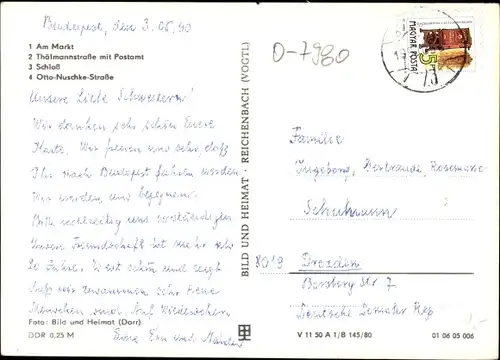 Budapest, den 3. 06. 90
1 Am Markt
2 Thälmannstraße mit Postamt
3 Schloß
4 Otto-Nuschke-Straße
Unsere Liebe Schwestern!
Wir danken sehr schön Euere
Karte. Wir freuen uns sehr, daß
Ihr nach Budapest fahren werden.
Wir werden uns begegnen.
Bitte rechtzeitig uns verständigen
Unsere Freundschaft ist mehr als
20 Jahre. Es ist schön und zeigt
daß wir zusammen sehr
Menschen sind. Auf Wiedersehen
Eure und
Foto: Bild und Heimat (Darr)
DDR 0,25 M
BILD UND HEIMAT · REICHENBACH (VOGTL)
D-7980
MAGYAR POSTA
5 Ft
Familie
Ingeborg, Gertraude, Rosemarie
Schuhmann
8019 Dresden
Str 7
Deutsche Rep
V 11 50 A 1/B 145/80
01 06 05 006